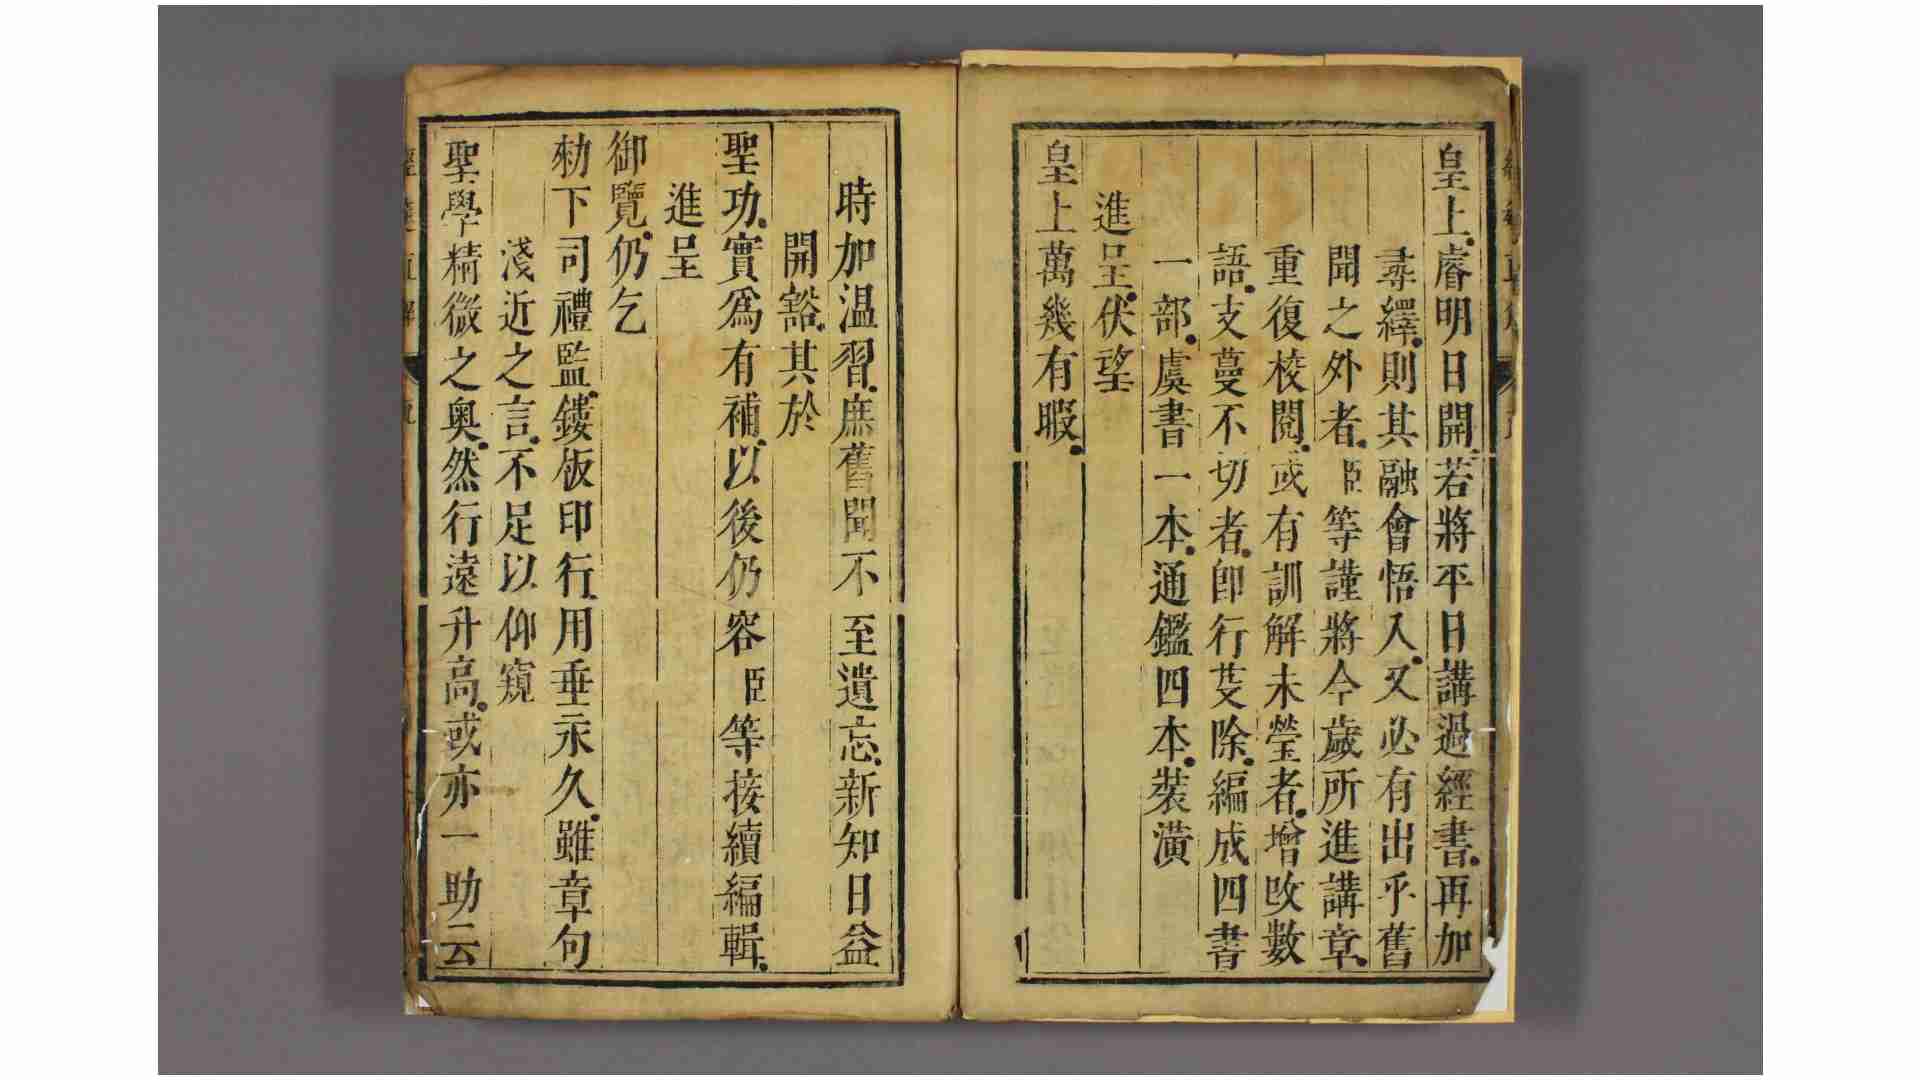 皇上睿明日開若將平日講過經書再加
尋繹則其融會悟入又必有出乎舊
聞之外者臣等謹將今歲所進講章
重復校閱或有訓解未瑩者增改數
語支蔓不切者即行芟除編成四書
一部虞書一本通鑑四本裝潢
進呈伏望
皇上萬幾有暇
時加温習庶舊聞不至遺忘新知日益
開豁其於
聖功實爲有補以後仍容臣等接續編輯
進呈
御覽仍乞
勑下司禮監鏤板印行用垂永久雖章句
淺近之言不足以仰窺
聖學精微之奥然行遠升高或亦一助云